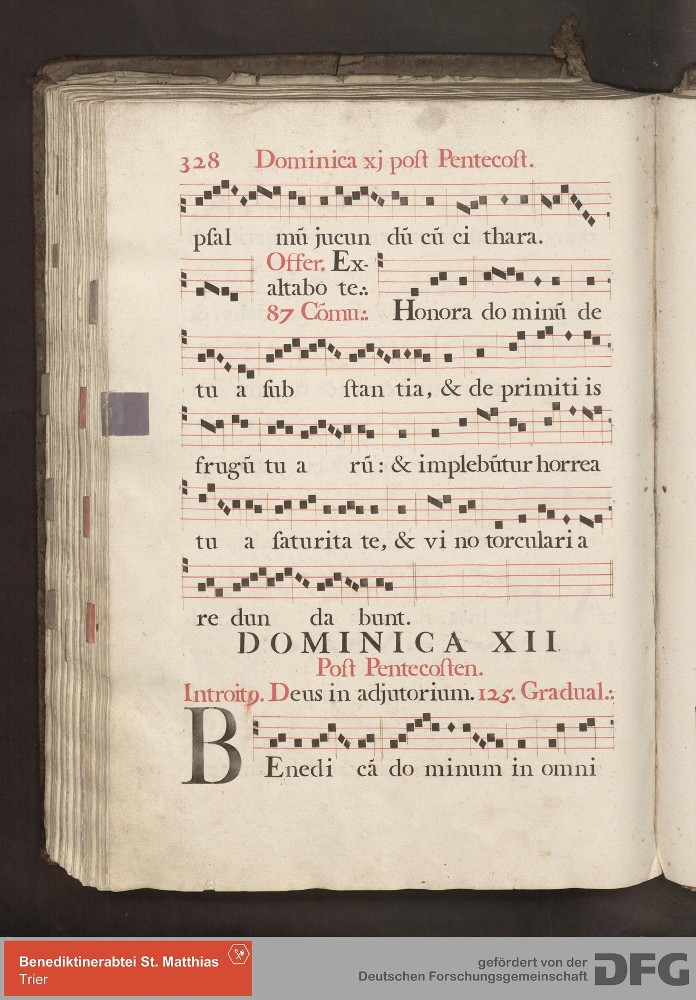 328 Dominica xj poſt Pentecoſt.
pſal mū jucun dū cū ci thara.
Offer. Ex-
altabo te.:
87 Cōmu.: Honora do minū de
tu a ſub ſtan tia, & de primiti is
frugū tu a rū: & implebūtur horrea
tu a ſaturita te, & vi no torculari a
re dun da bunt.
DOMINICA XII
Poſt Pentecoſten.
Introitꝰ. Deus in adjutorium. 125. Gradual.:
BEnedi cā do minum in omni
Benediktinerabtei St. Matthias
Trier
gefördert von der
Deutschen Forschungsgemeinschaft
DFG